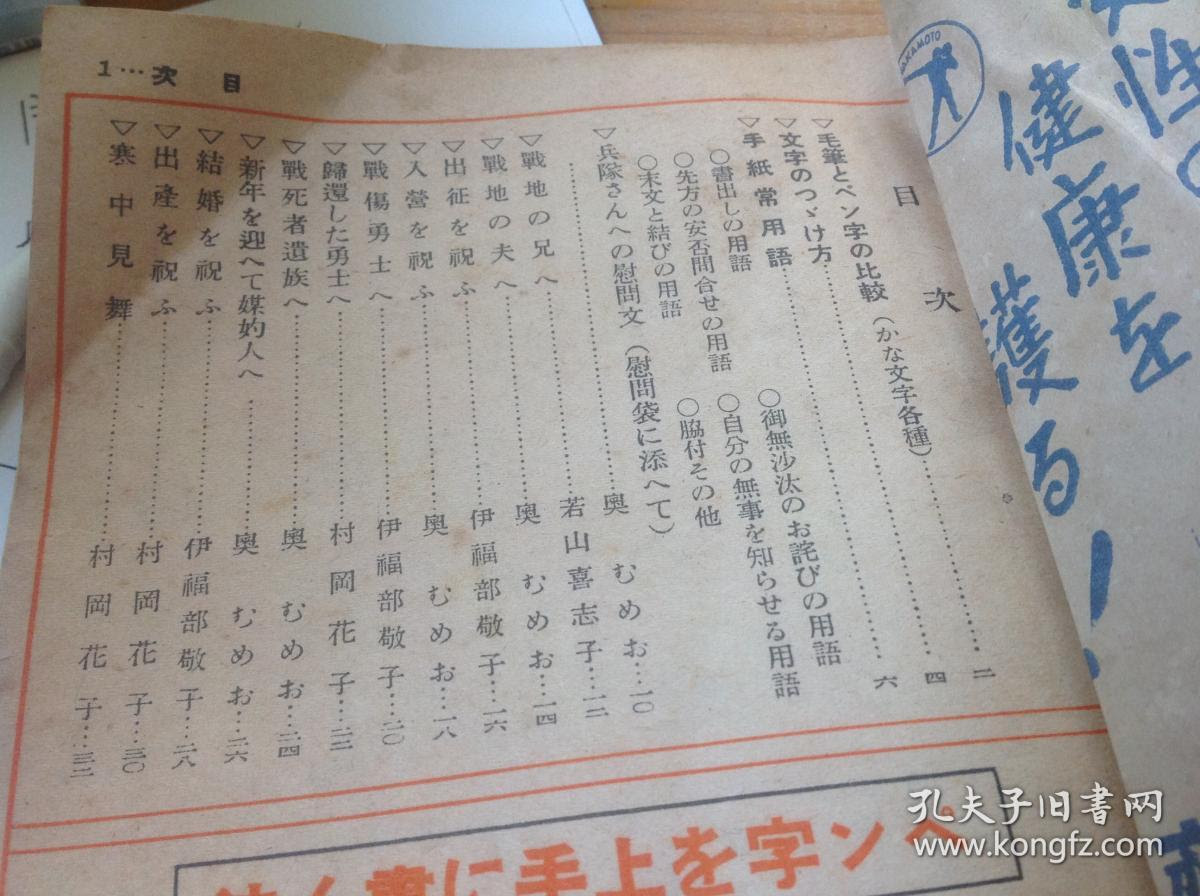 1…次 目
目 次
▽毛筆とペン字の比較(かな文字各種)……二
▽文字のつゞけ方……四
▽手紙常用語……六
○書出しの用語 ○御無沙汰のお詫びの用語
○先方の安否問合せの用語 ○自分の無事を知らせる用語
○末文と結びの用語 ○脇付その他
▽兵隊さんへの慰問文(慰問袋に添へて)
……奥 むめお…一〇
若山喜志子…一二
▽戰地の兄へ……奥 むめお…一四
▽戰地の夫へ……伊福部敬子…一六
▽出征を祝ふ……奥 むめお…一八
▽入營を祝ふ……伊福部敬子…二〇
▽戰傷勇士へ……村岡花子…二二
▽歸還した勇士へ……奥 むめお…二四
▽戰死者遺族へ……奥 むめお…二六
▽新年を迎へて媒妁人へ……伊福部敬子…二八
▽結婚を祝ふ……村岡花子…三〇
▽出產を祝ふ……村岡花子…三二
▽寒中見舞
ペン字を上手に書く
性の
健康を
護る!
孔夫子旧书网
www.kongfz.com